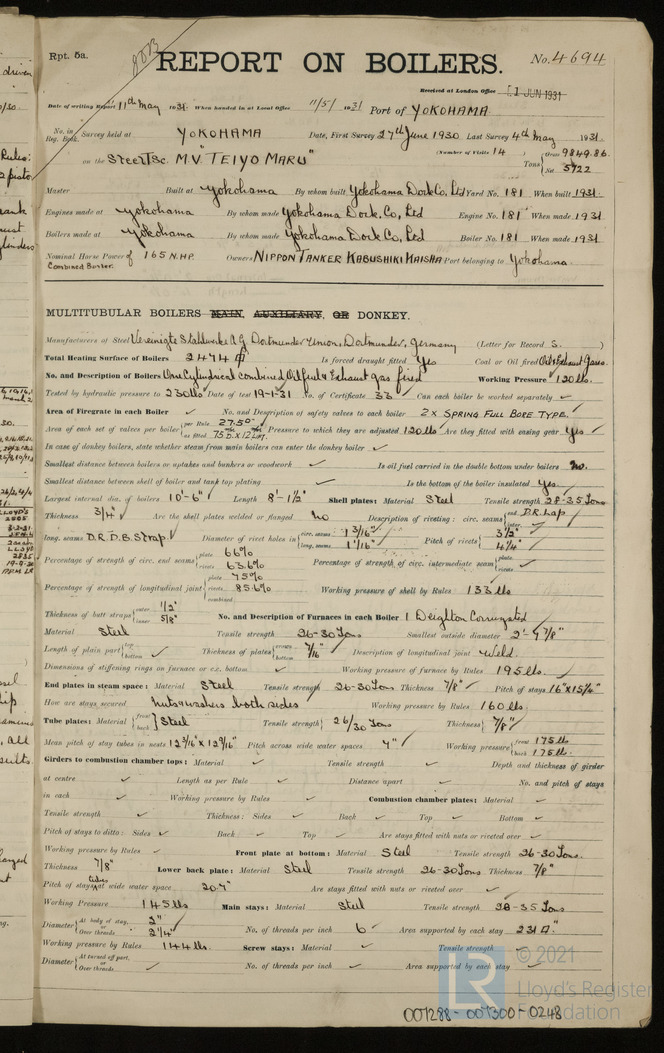 Rpt. 5a.
REPORT ON BOILERS.
No. 4694
Received at London Office 11 JUN 1931
Date of writing Report 11th May 1931. When handed in at Local Office 11/5/1931 Port of YOKOHAMA
No. in Reg. Book. Survey held at YOKOHAMA Date, First Survey 27th June 1930 Last Survey 4th May 1931.
(Number of Visits 14)
on the Steel TSc. M.V. "TEIYO MARU" Tons { Gross 9849.86. Net 5722
Master Built at Yokohama By whom built Yokohama Dock Co, Ltd Yard No. 181 When built 1931.
Engines made at Yokohama By whom made Yokohama Dock Co, Ltd Engine No. 181 When made 1931
Boilers made at Yokohama By whom made Yokohama Dock Co, Ltd Boiler No. 181 When made 1931
Nominal Horse Power of 165 N.H.P. Owners NIPPON TANKER KABUSHIKI KAISHA Port belonging to Yokohama
Combined Burner.
MULTITUBULAR BOILERS MAIN, AUXILIARY, OR DONKEY.
Manufacturers of Steel Vereinigte Stahlwerke A.G Dortmunder Union, Dortmunder, Germany (Letter for Record S.)
Total Heating Surface of Boilers 2474 Is forced draught fitted Yes Coal or Oil fired Oil & Exhaust Gases.
No. and Description of Boilers One Cylindrical combined Oil fuel & Exhaust gas fired Working Pressure 120 lbs.
Tested by hydraulic pressure to 230 lbs Date of test 19-1-31 No. of Certificate 33 Can each boiler be worked separately ✓
Area of Firegrate in each Boiler ✓ No. and Description of safety valves to each boiler 2X SPRING FULL BORE TYPE.
Area of each set of valves per boiler { per Rule 27.50" as fitted 75 D. X 12 LIFT. Pressure to which they are adjusted 120 lbs Are they fitted with easing gear Yes ✓
In case of donkey boilers, state whether steam from main boilers can enter the donkey boiler ✓
Smallest distance between boilers or uptakes and bunkers or woodwork ✓ Is oil fuel carried in the double bottom under boilers No.
Smallest distance between shell of boiler and tank top plating ✓ Is the bottom of the boiler insulated Yes.
Largest internal dia. of boilers 10'-6" Length 8'-1½" Shell plates: Material Steel Tensile strength 28-35 Tons
Thickness 3/4" Are the shell plates welded or flanged No Description of riveting: circ. seams { end D.R. Lap inter. ✓
long. seams D.R. D.B. Strap. Diameter of rivet holes in { circ. seams 1 3/16" long. seams 1 1/16" Pitch of rivets { 3½" 4¼"
Percentage of strength of circ. end seams { plate 66% rivets 63.6% Percentage of strength of circ. intermediate seam { plate rivets ✓
Percentage of strength of longitudinal joint { plate 75% rivets 85.6% combined Working pressure of shell by Rules 133 lbs
Thickness of butt straps { outer 1/2" inner 5/8" No. and Description of Furnaces in each Boiler 1 Deighton Corrugated
Material Steel Tensile strength 26-30 Tons Smallest outside diameter 2'-9 7/8"
Length of plain part { top bottom ✓ Thickness of plates { crown bottom 7/16" Description of longitudinal joint Weld.
Dimensions of stiffening rings on furnace or c.c. bottom ✓ Working pressure of furnace by Rules 195 lbs.
End plates in steam space: Material Steel Tensile strength 26-30 Tons Thickness 7/8" Pitch of stays 16" X 15¼"
How are stays secured Nuts & washers both sides Working pressure by Rules 160 lbs.
Tube plates: Material { front back } Steel Tensile strength { 26/30 Tons Thickness { 7/8"
Mean pitch of stay tubes in nests 12 3/16" X 12 9/16" Pitch across wide water spaces 4" Working pressure { front 175 lbs back 175 lbs.
Girders to combustion chamber tops: Material ✓ Tensile strength ✓ Depth and thickness of girder
at centre ✓ Length as per Rule ✓ Distance apart ✓ No. and pitch of stays
in each ✓ Working pressure by Rules ✓ Combustion chamber plates: Material ✓
Tensile strength ✓ Thickness: Sides ✓ Back ✓ Top ✓ Bottom ✓
Pitch of stays to ditto: Sides ✓ Back ✓ Top ✓ Are stays fitted with nuts or riveted over ✓
Working pressure by Rules ✓ Front plate at bottom: Material Steel Tensile strength 26-30 Tons.
Thickness 7/8" Lower back plate: Material Steel Tensile strength 26-30 Tons Thickness 7/8"
Pitch of stays at wide water space 20.7" Are stays fitted with nuts or riveted over ✓
Working Pressure 145 lbs Main stays: Material Steel Tensile strength 28-35 Tons
Diameter { At body of stay, 2" or Over threads 2¼" No. of threads per inch 6 ✓ Area supported by each stay 231
Working pressure by Rules 144 lbs. Screw stays: Material ✓ Tensile strength
Diameter { At turned off part, or Over threads ✓ No. of threads per inch ✓ Area supported by each stay ✓
© 2021
LR
Lloyd's Register
Foundation
007288-007300-0248